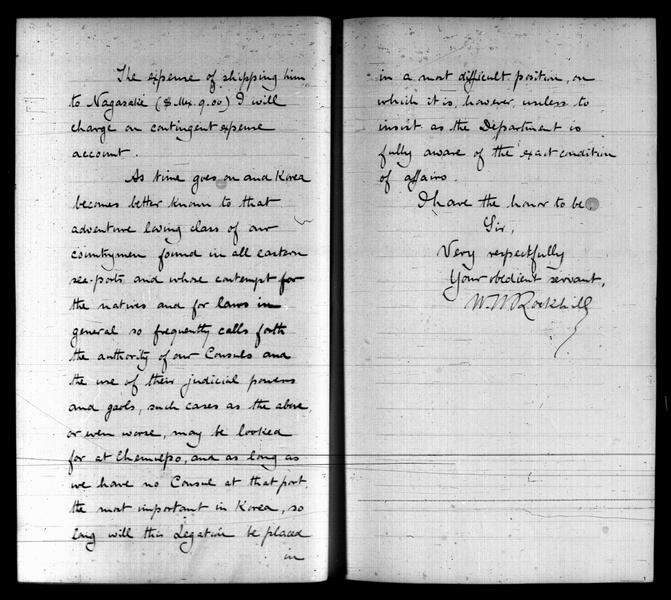 The expense of shipping him
to Nagasaki ($ Mx. 9.00) I will
charge on contingent expense
account.
As time goes on and Korea
becomes better known to that
adventure loving class of our
countrymen found in all eastern
sea-ports and whose contempt for
the natives and for laws in
general so frequently calls forth
the authority of our Consuls and
the use of their judicial powers
and gaols, such cases as the above,
or even worse, may be looked
for at Chemulpo, and as long as
we have no Consul at that port,
the most important in Korea, so
long will this Legation be placed
in
in a most difficult position, on
which it is, however, useless to
insist as the Department is
fully aware of the exact condition
of affairs.
I have the honor to be
Sir,
Very respectfully
Your obedient servant,
W. W. Rockhill